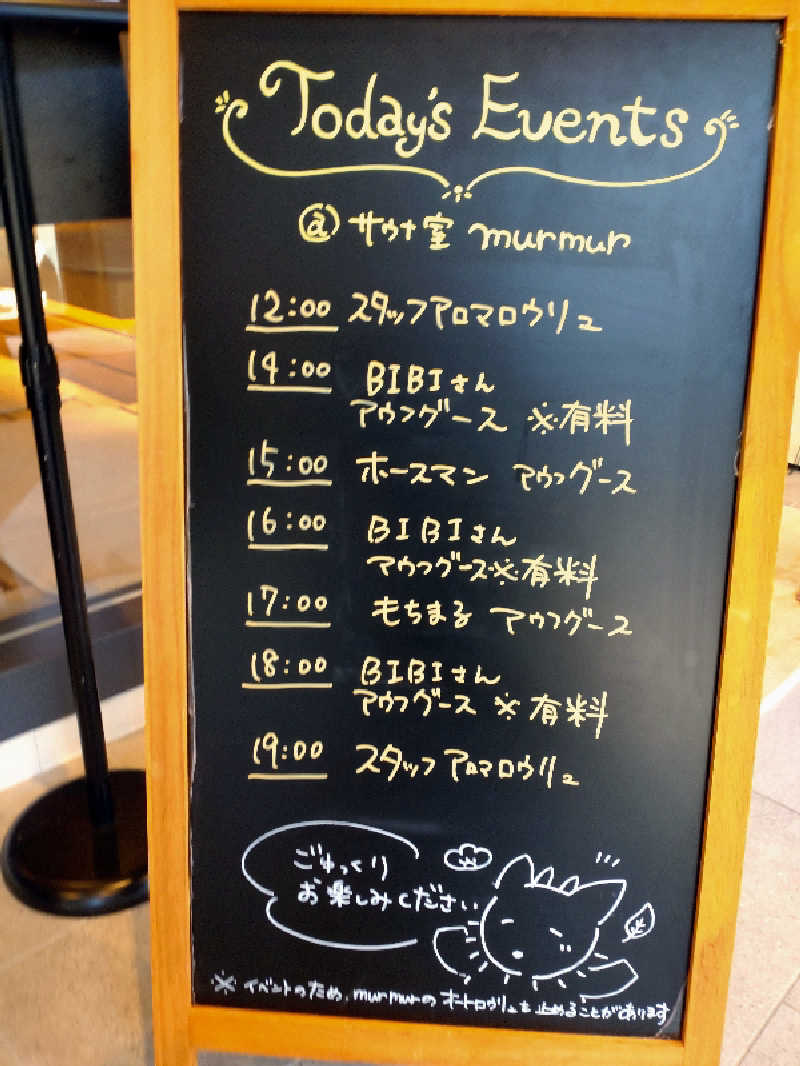 Today's Events
@ サウナ室 murmur
12:00 スタッフアロマロウリュ
14:00 BIBIさん
アウフグース ※有料
15:00 ホースマン アウフグース
16:00 BIBIさん
アウフグース※有料
17:00 もちまる アウフグース
18:00 BIBIさん
アウフグース ※有料
19:00 スタッフ アロマロウリュ
ごゆっくり
お楽しみください
※ イベントのため、murmurの オートロウリュを 止めることがあります